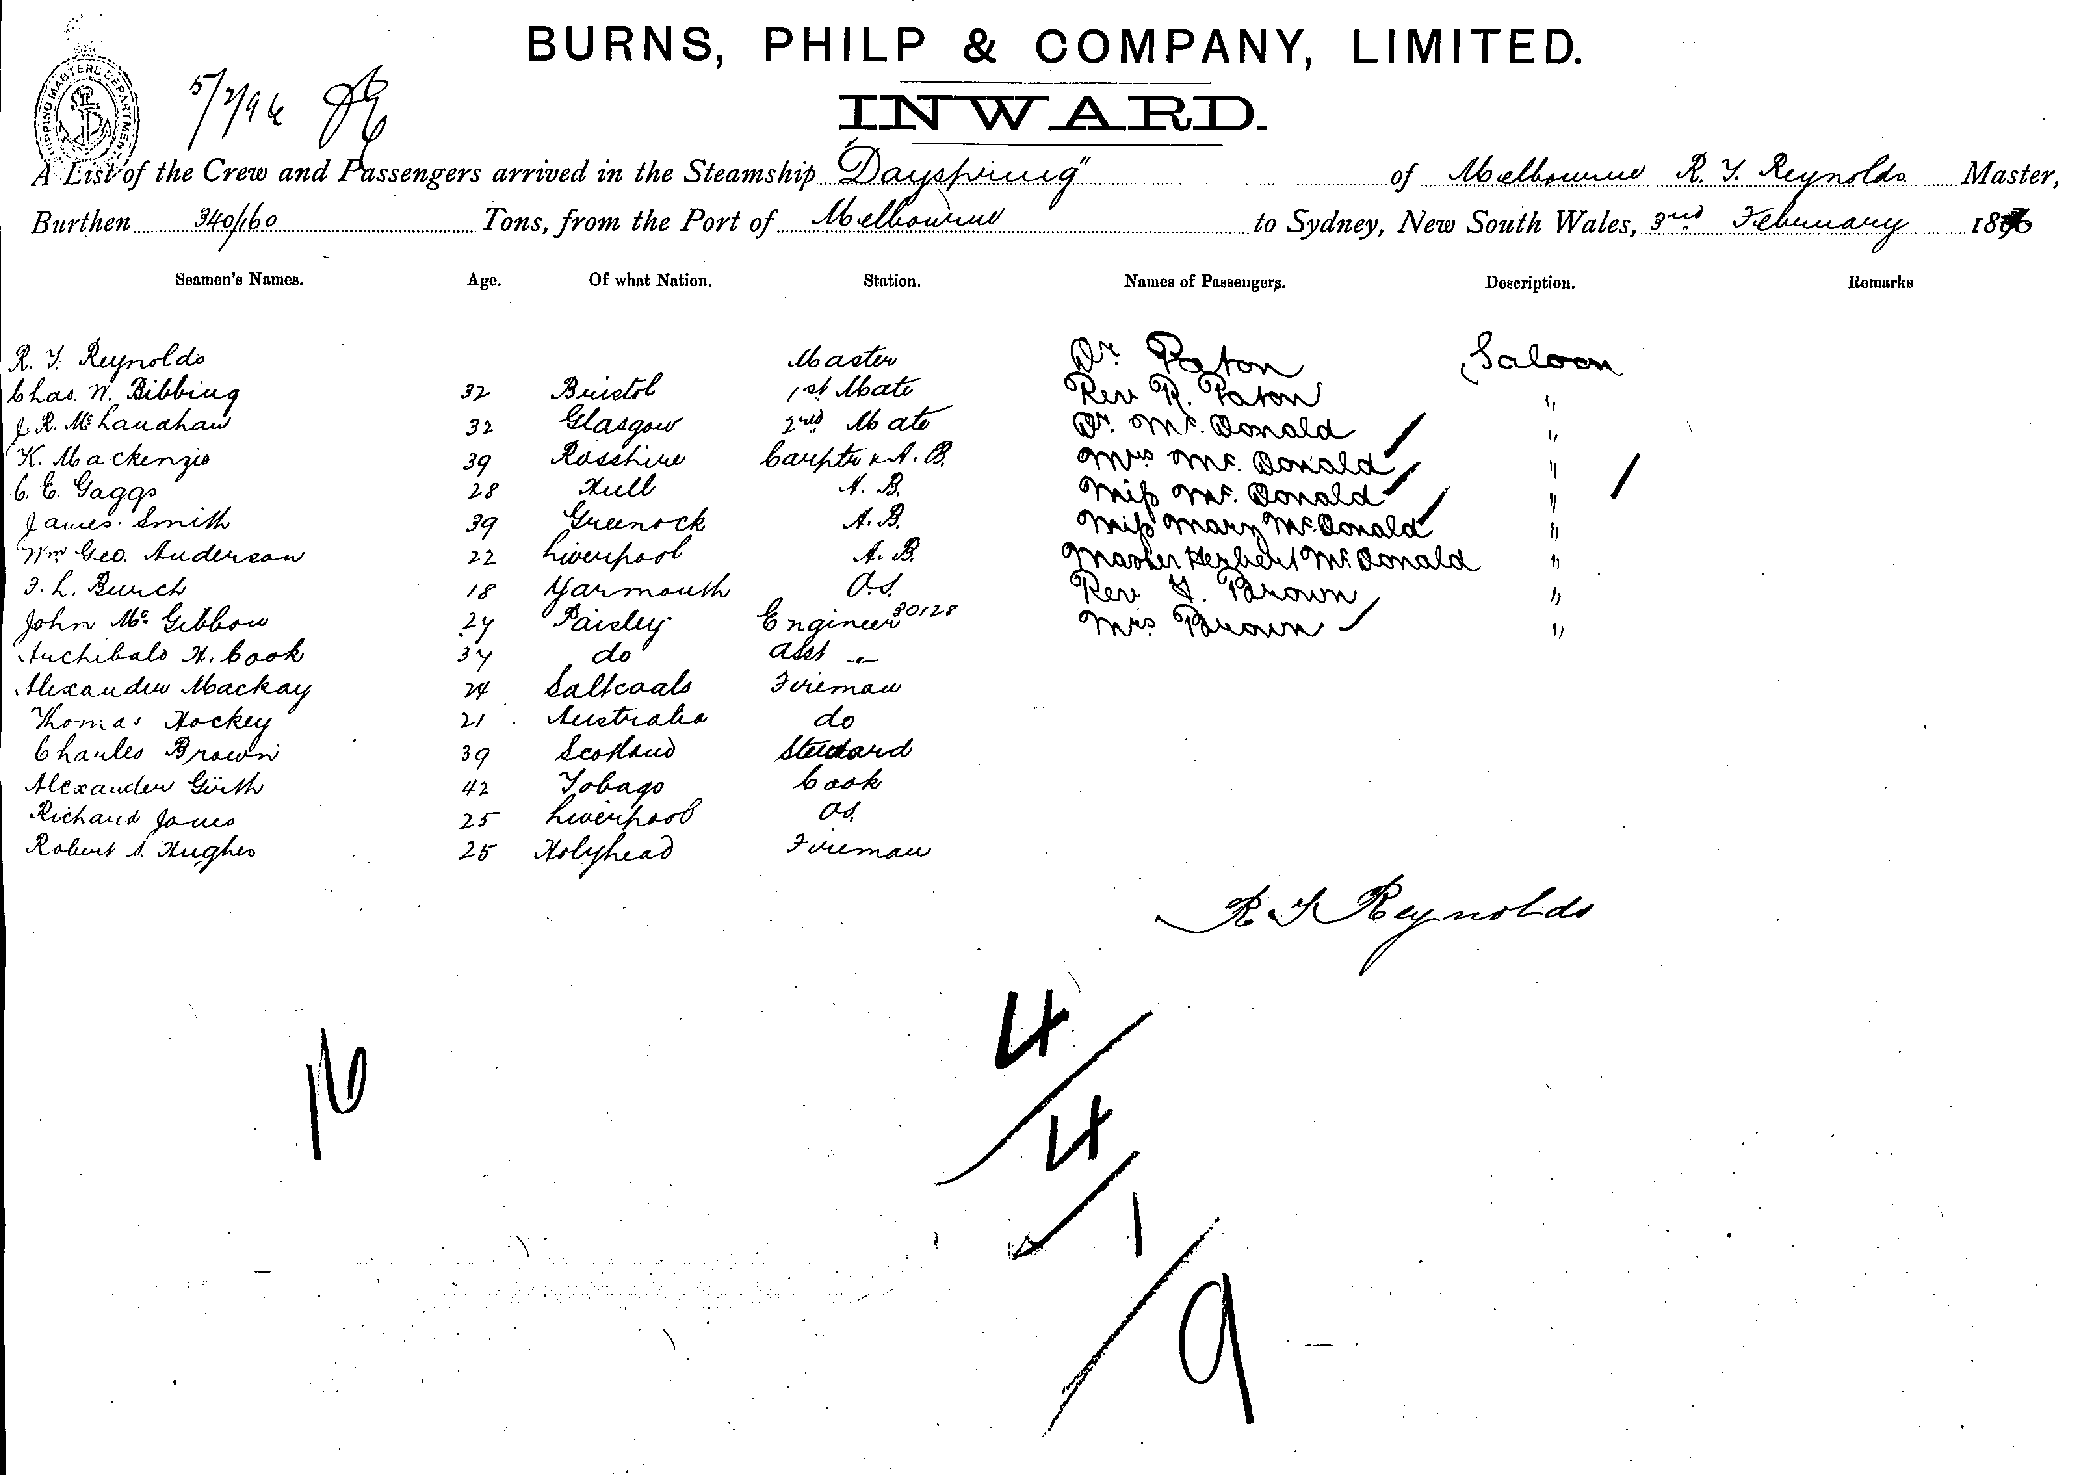 BURNS, PHILP & COMPANY, LIMITED.
INWARD.
SHIPPING MASTERS DEPARTMENT
5/2/96
A List of the Crew and Passengers arrived in the Steamship "Dayspring" of Melbourne R. T. Reynolds Master,
Burthen 340/160 Tons, from the Port of Melbourne to Sydney, New South Wales, 3rd February 1896
Seamen's Names. Age. Of what Nation. Station. Names of Passengers. Description. Remarks
R. T. Reynolds Master Dr. Paton Saloon
Chas. W. Bibbing 32 Bristol 1st Mate Rev R. Paton "
J. R. 32 Glasgow 2nd Mate Dr. Mc. Donald "
K. Mackenzie 39 Rosshire Carptr & A. B. Mrs Mc. Donald "
C. E. Gaggs 28 Hull A. B. Miss Mc. Donald "
James Smith 39 Greenock A. B. Miss Mary Mc. Donald "
Wm Geo. Anderson 22 Liverpool A. B. Master Herbert Mc. Donald "
F. L. Burch 18 Yarmouth O.S. Rev Brown "
John Mc Gibbon 24 Paisley Engineer 30128 Mrs. Brown "
Archibald H. Cook 34 do Asst "
Alexander Mackay 24 Saltcoats Fireman
Thomas Hockey 21 Australia do
Charles Brown 39 Scotland Steward
Alexander 42 Tobago Cook
Richard Jones 25 Liverpool O.S.
Robert Hughes 25 Holyhead Fireman
R. T. Reynolds
16
4
4
1
9